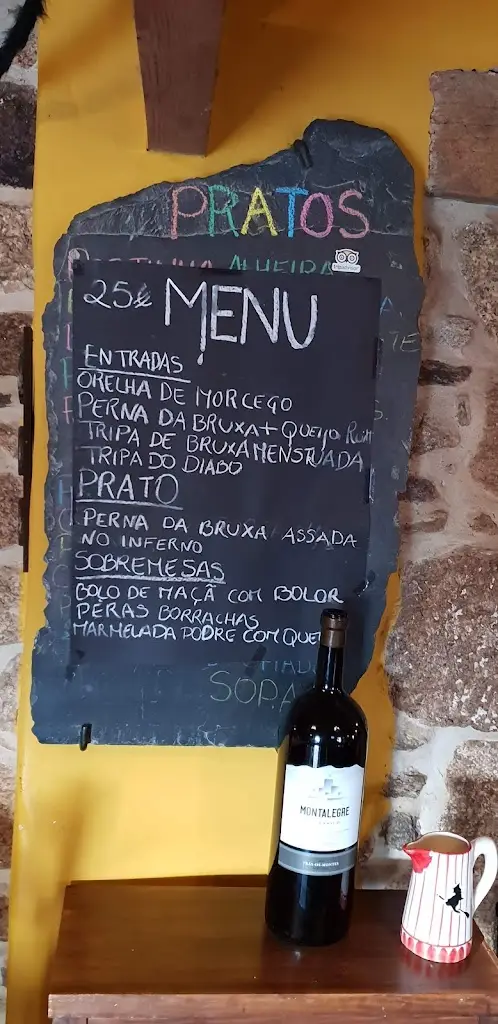 PRATOS
ALHEIRA
25€ MENU
ENTRADAS
ORELHA DE MORCEGO
PERNA DA BRUXA + QUEIJO
TRIPA DE BRUXA MENSTRUADA
TRIPA DO DIABO
PRATO
PERNA DA BRUXA ASSADA
NO INFERNO
SOBREMESAS
BOLO DE MAÇÃ COM BOLOR
PERAS BORRACHAS
MARMELADA PODRE COM QUE
SOPA
MONTALEGRE